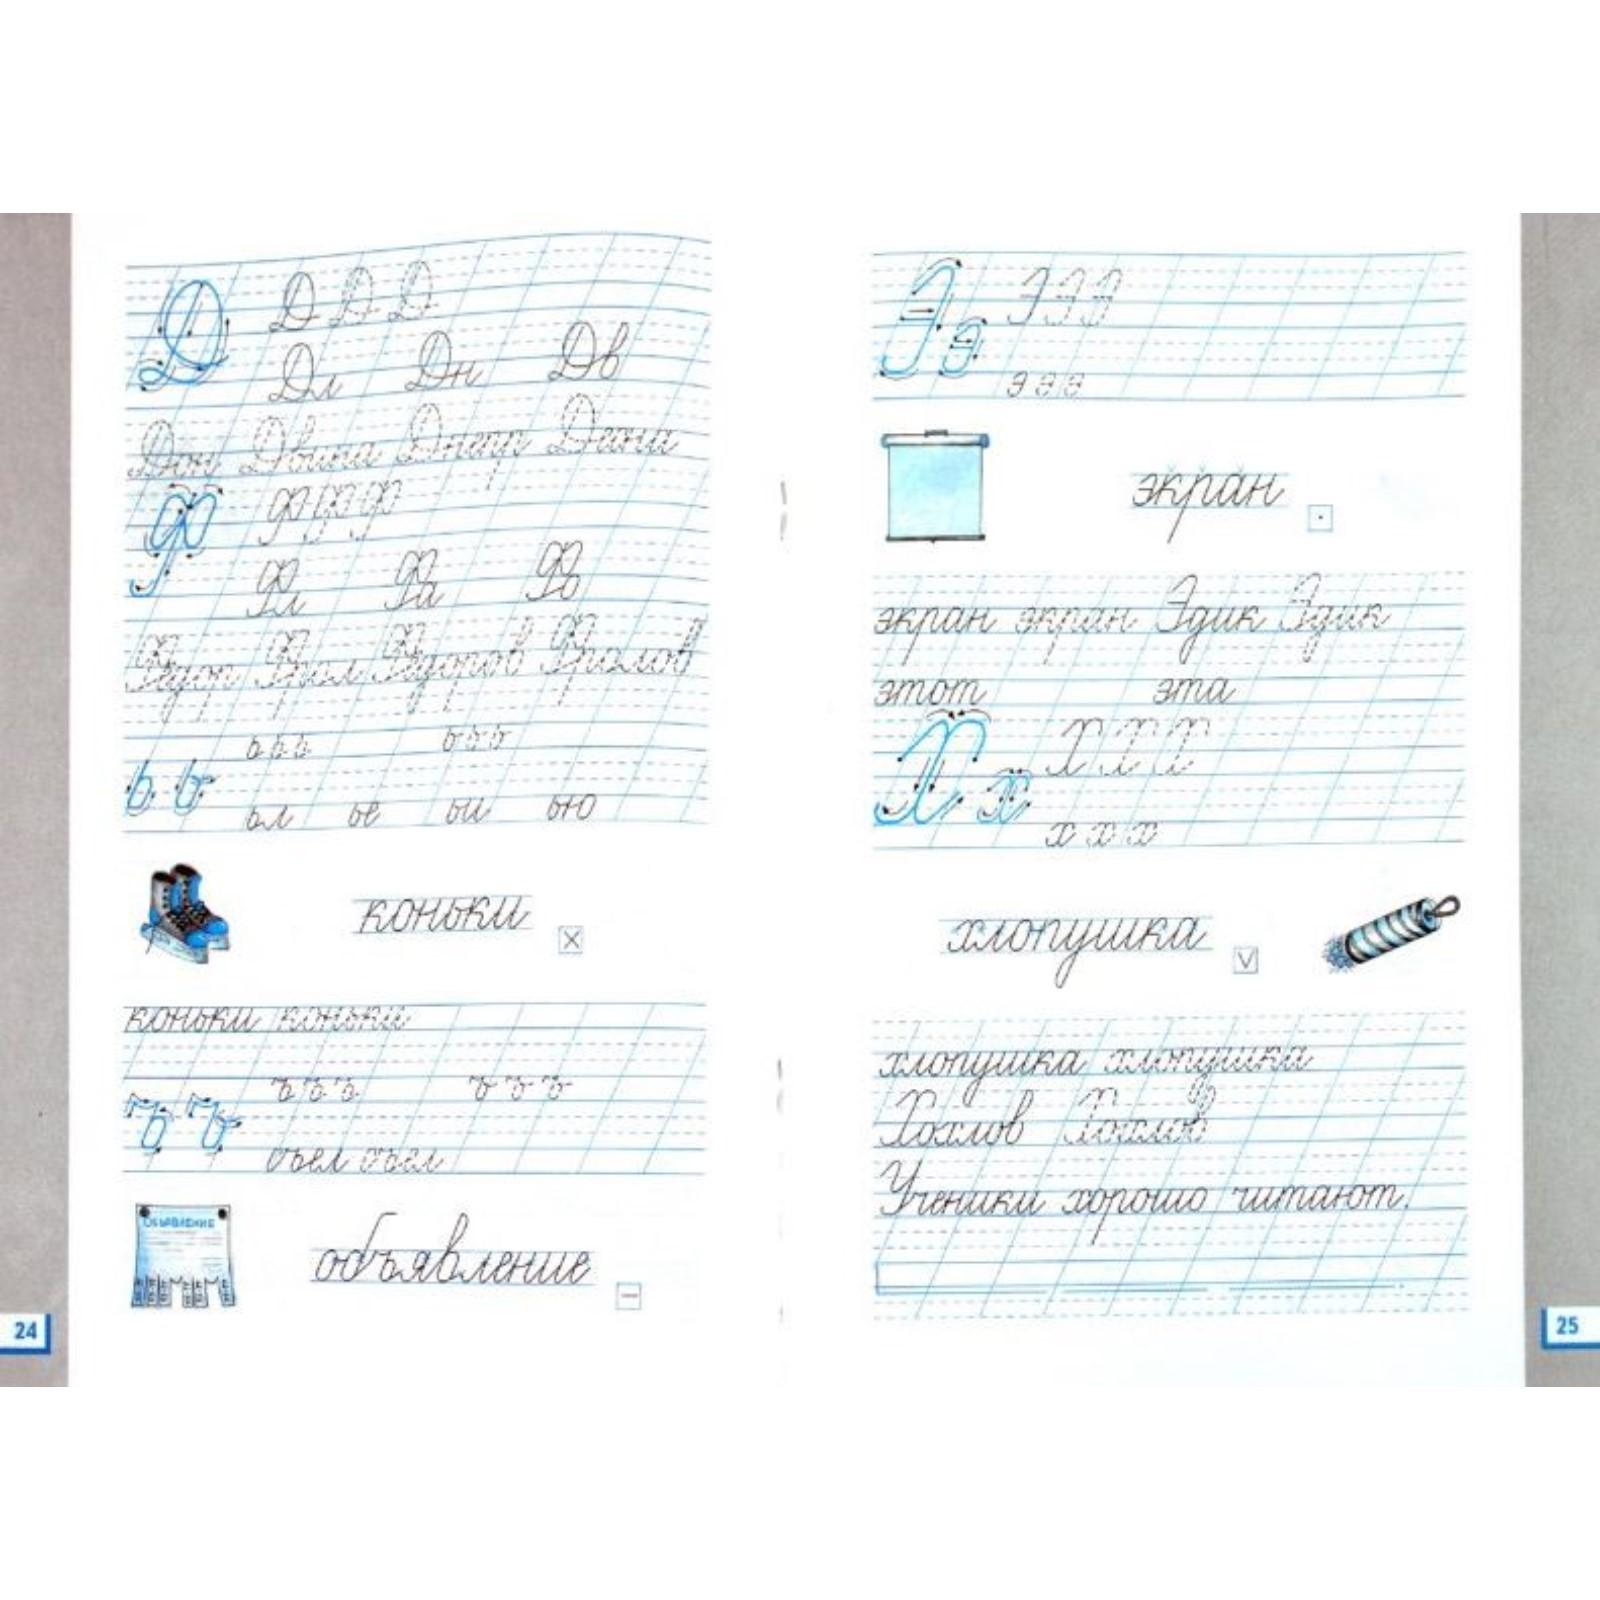 Д Д Д Д
Дл Дн Дв
Дон Двина Днепр Десна
Ф Ф Ф Ф
Фл Фа Фо
Фёдор Фрол Фёдоров Фролов
ььь ььь
ь ь
ьл ье ьи ью
коньки
коньки коньки
ъъъ ъъъ
ъ ъ
съел съел
ОБЪЯВЛЕНИЕ
объявление
24
Э э Э Э Э
э э э
экран
экран экран Эдик Эдик
этот эта
Х х Х Х Х
х х х
хлопушка
хлопушка хлопушка
Хохлов Хохлов
Ученики хорошо читают.
25